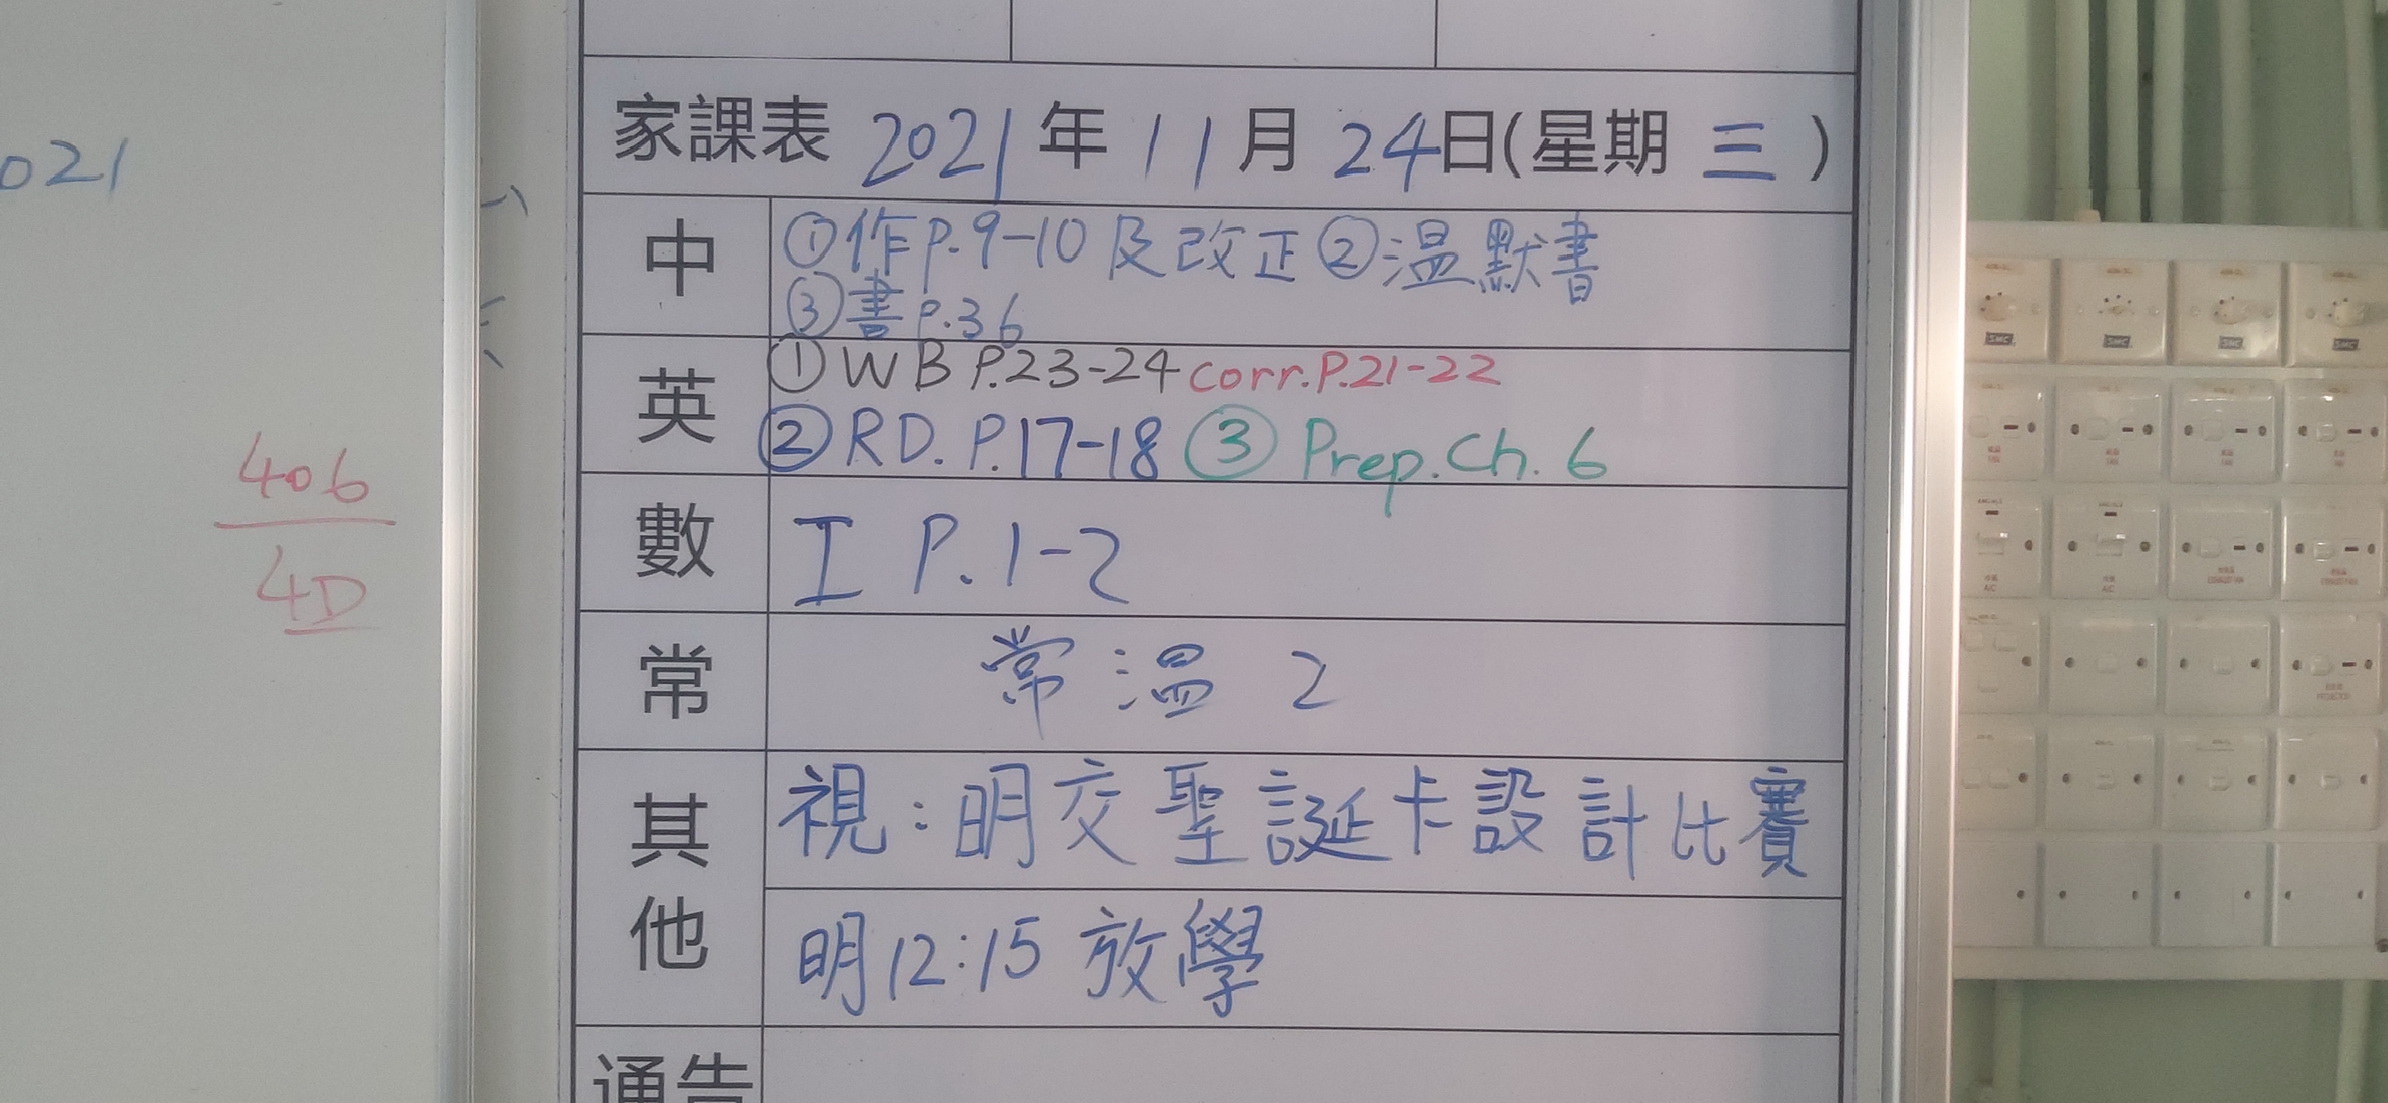 021
406
4D
家課表 2021 年 11 月 24日(星期 三 )
中
①作P.9-10 及改正②溫默書
③書P.36
英
①WB P.23-24 corr.P.21-22
②RD. P.17-18 ③ Prep. Ch. 6
數
工 P.1-2
常
常溫 2
其他
視:明交聖誕卡設計比賽
明12:15 放學
通告